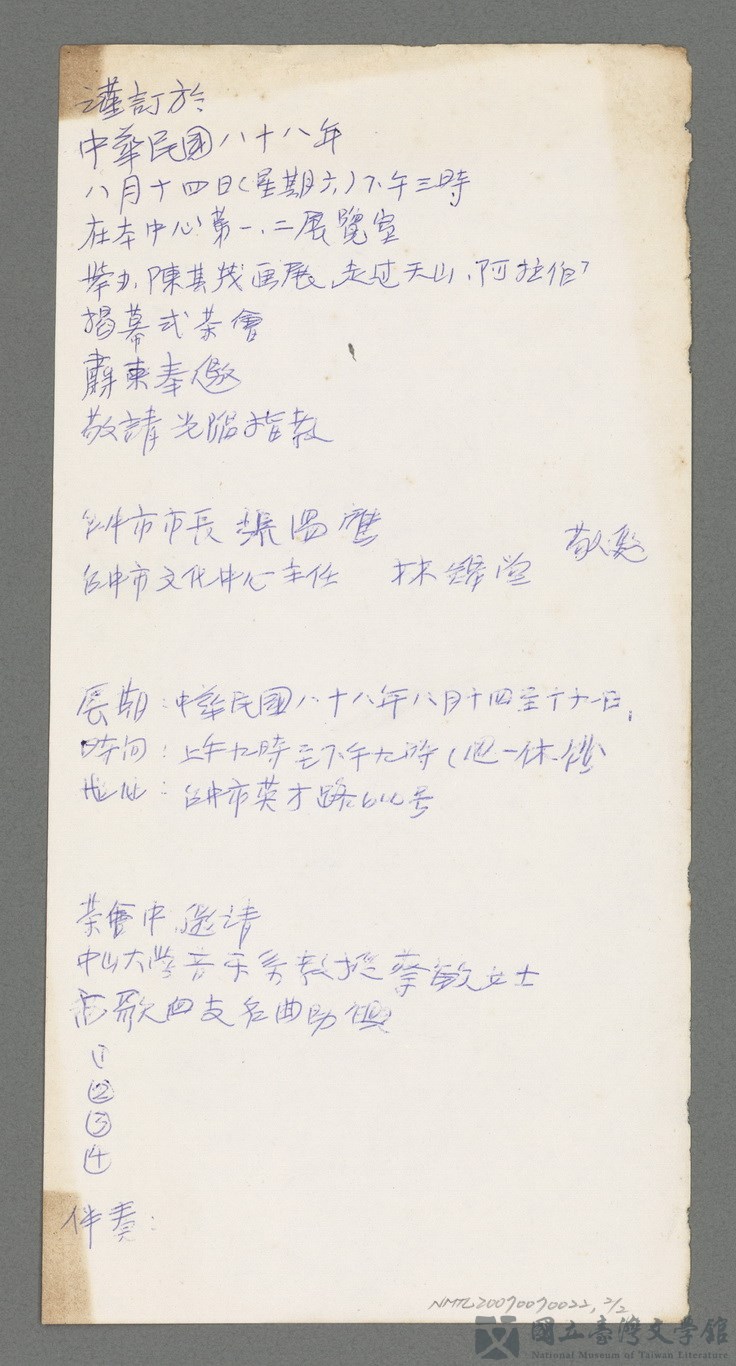 謹訂於
中華民國八十八年
八月十四日(星期六)下午三時
在本中心第一、二展覽室
舉办、陳其茂画展、走过天山、阿拉伯
揭幕式茶會
肅柬奉邀
敬請光臨指教
台中市市長 張溫鷹
敬邀
台中市文化中心主任 林輝堂
展期:中華民國八十八年八月十四至廿一日
時间:上午九時至下午九時(週一休館)
地址:台中市英才路600号
茶會中邀請
中山大學音乐系教授蔡敏女士
高歌四支名曲助興
①
②
③
④
伴奏:
NMTL20090090022, 2/2
國立臺灣文學館
National Museum of Taiwan Literature